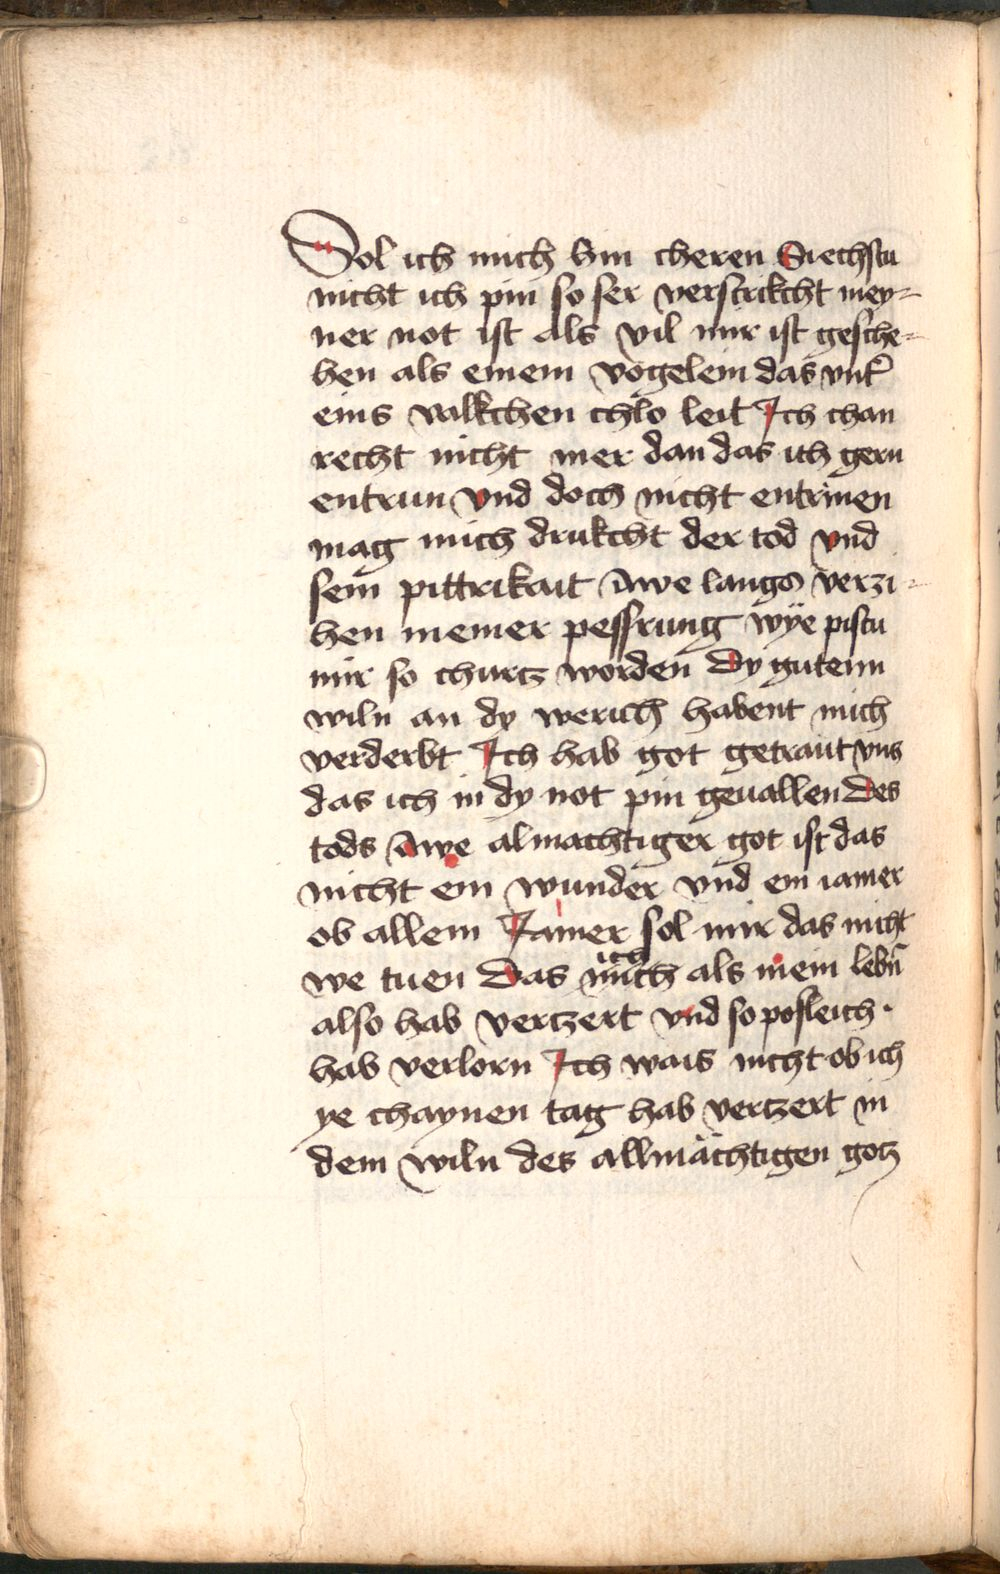 Sol ich mich hin cheren Siechstu
nicht ich pin so ser verstrikcht mey-
ner not ist als vil mir ist gesche-
hen als einem vogelein das unt̉
eins valkchen chlo leit Ich chan
recht nicht mer dan das ich gern
entrun vnd doch nicht entrinen
mag mich drukcht der tod vnd
sein pittrikait Awe langs verzi-
hen meiner pessrung wye pistu
mir so churtz worden Dy gutenn
wiln an dy werich habent mich
verderbt Ich hab got getraut vns
das ich in dy not pin geuallen Des
tods Awe almachtiger got ist das
nicht ein wunder vnd ein iamer
ob allem Jamer sol mir das nicht
we tuen Das ich als mein lebn̄
also hab vertzert vnd so posleich ·
hab verlorn Ich wais nicht ob ich
ye chaynen tag hab vertzert in
dem wiln des allmächtigen gotz